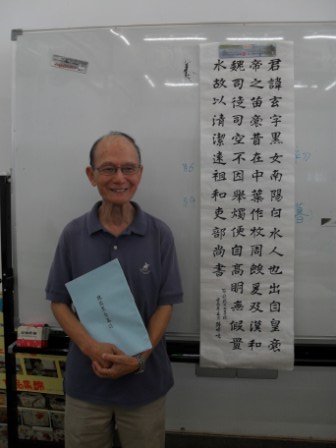 君諱玄字黑女南陽白水人也出自皇
帝之苗裔昔在中葉作牧周殷爰及漢和
魏司徒司空不因舉燭便自高明無假置
水故以清潔遠祖和吏部尚書